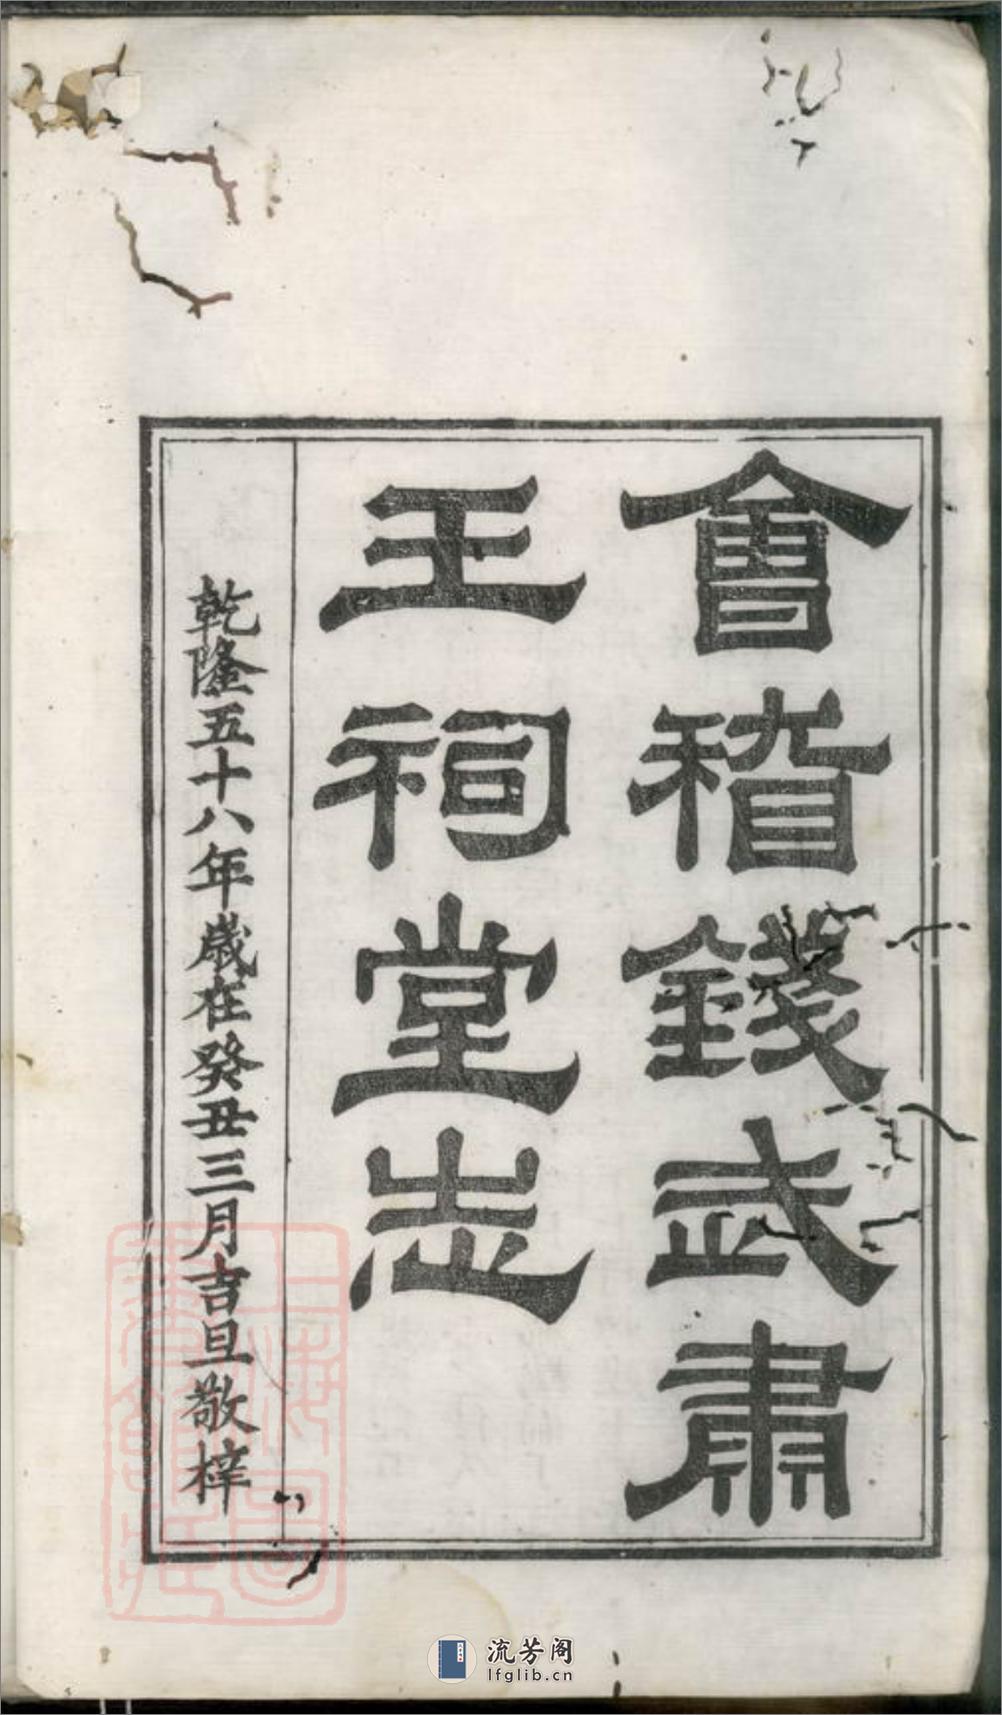 會稽錢武肅
王祠堂志
乾隆五十八年歲在癸丑三月吉旦敬梓
上海圖
書館藏
流芳阁
lfglib.cn